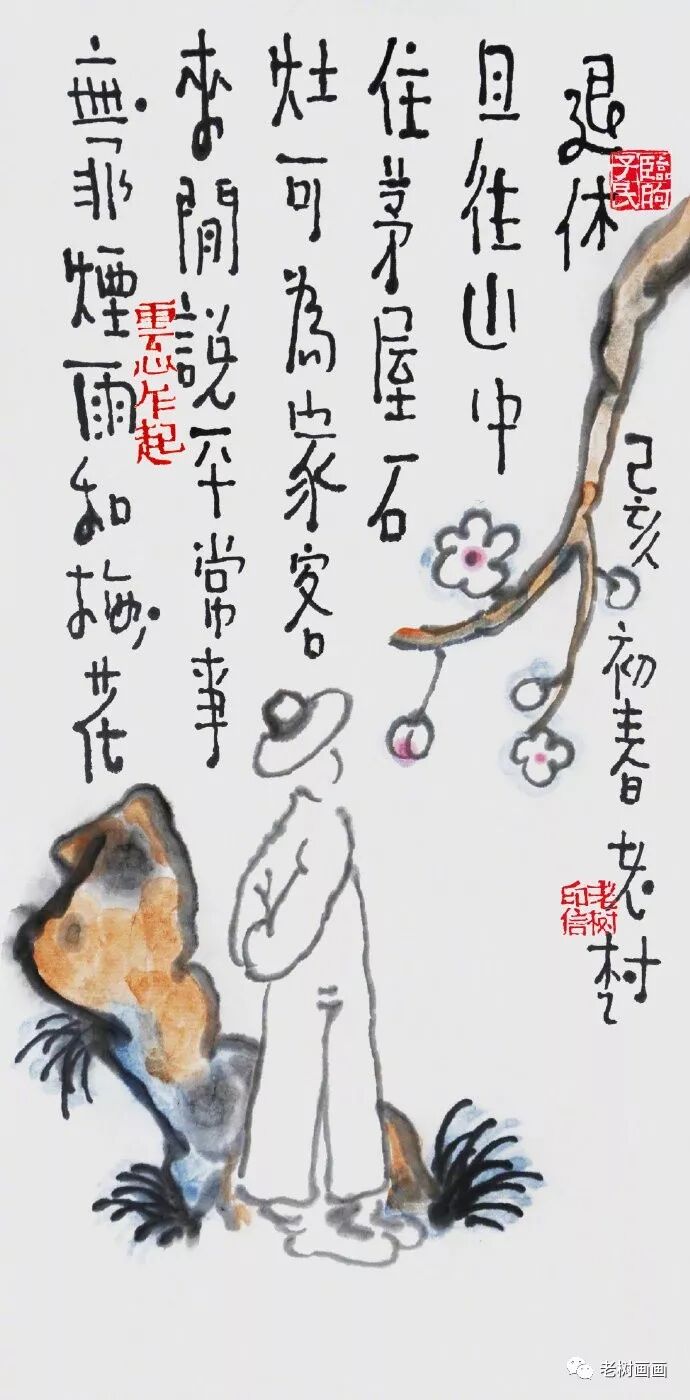 退休
且往山中
住茅屋石
灶可為家客
來閒說平常事
無非煙雨和梅花
己亥初春 老树
臨朐子民
雲心乍起
老树印信
老树画画